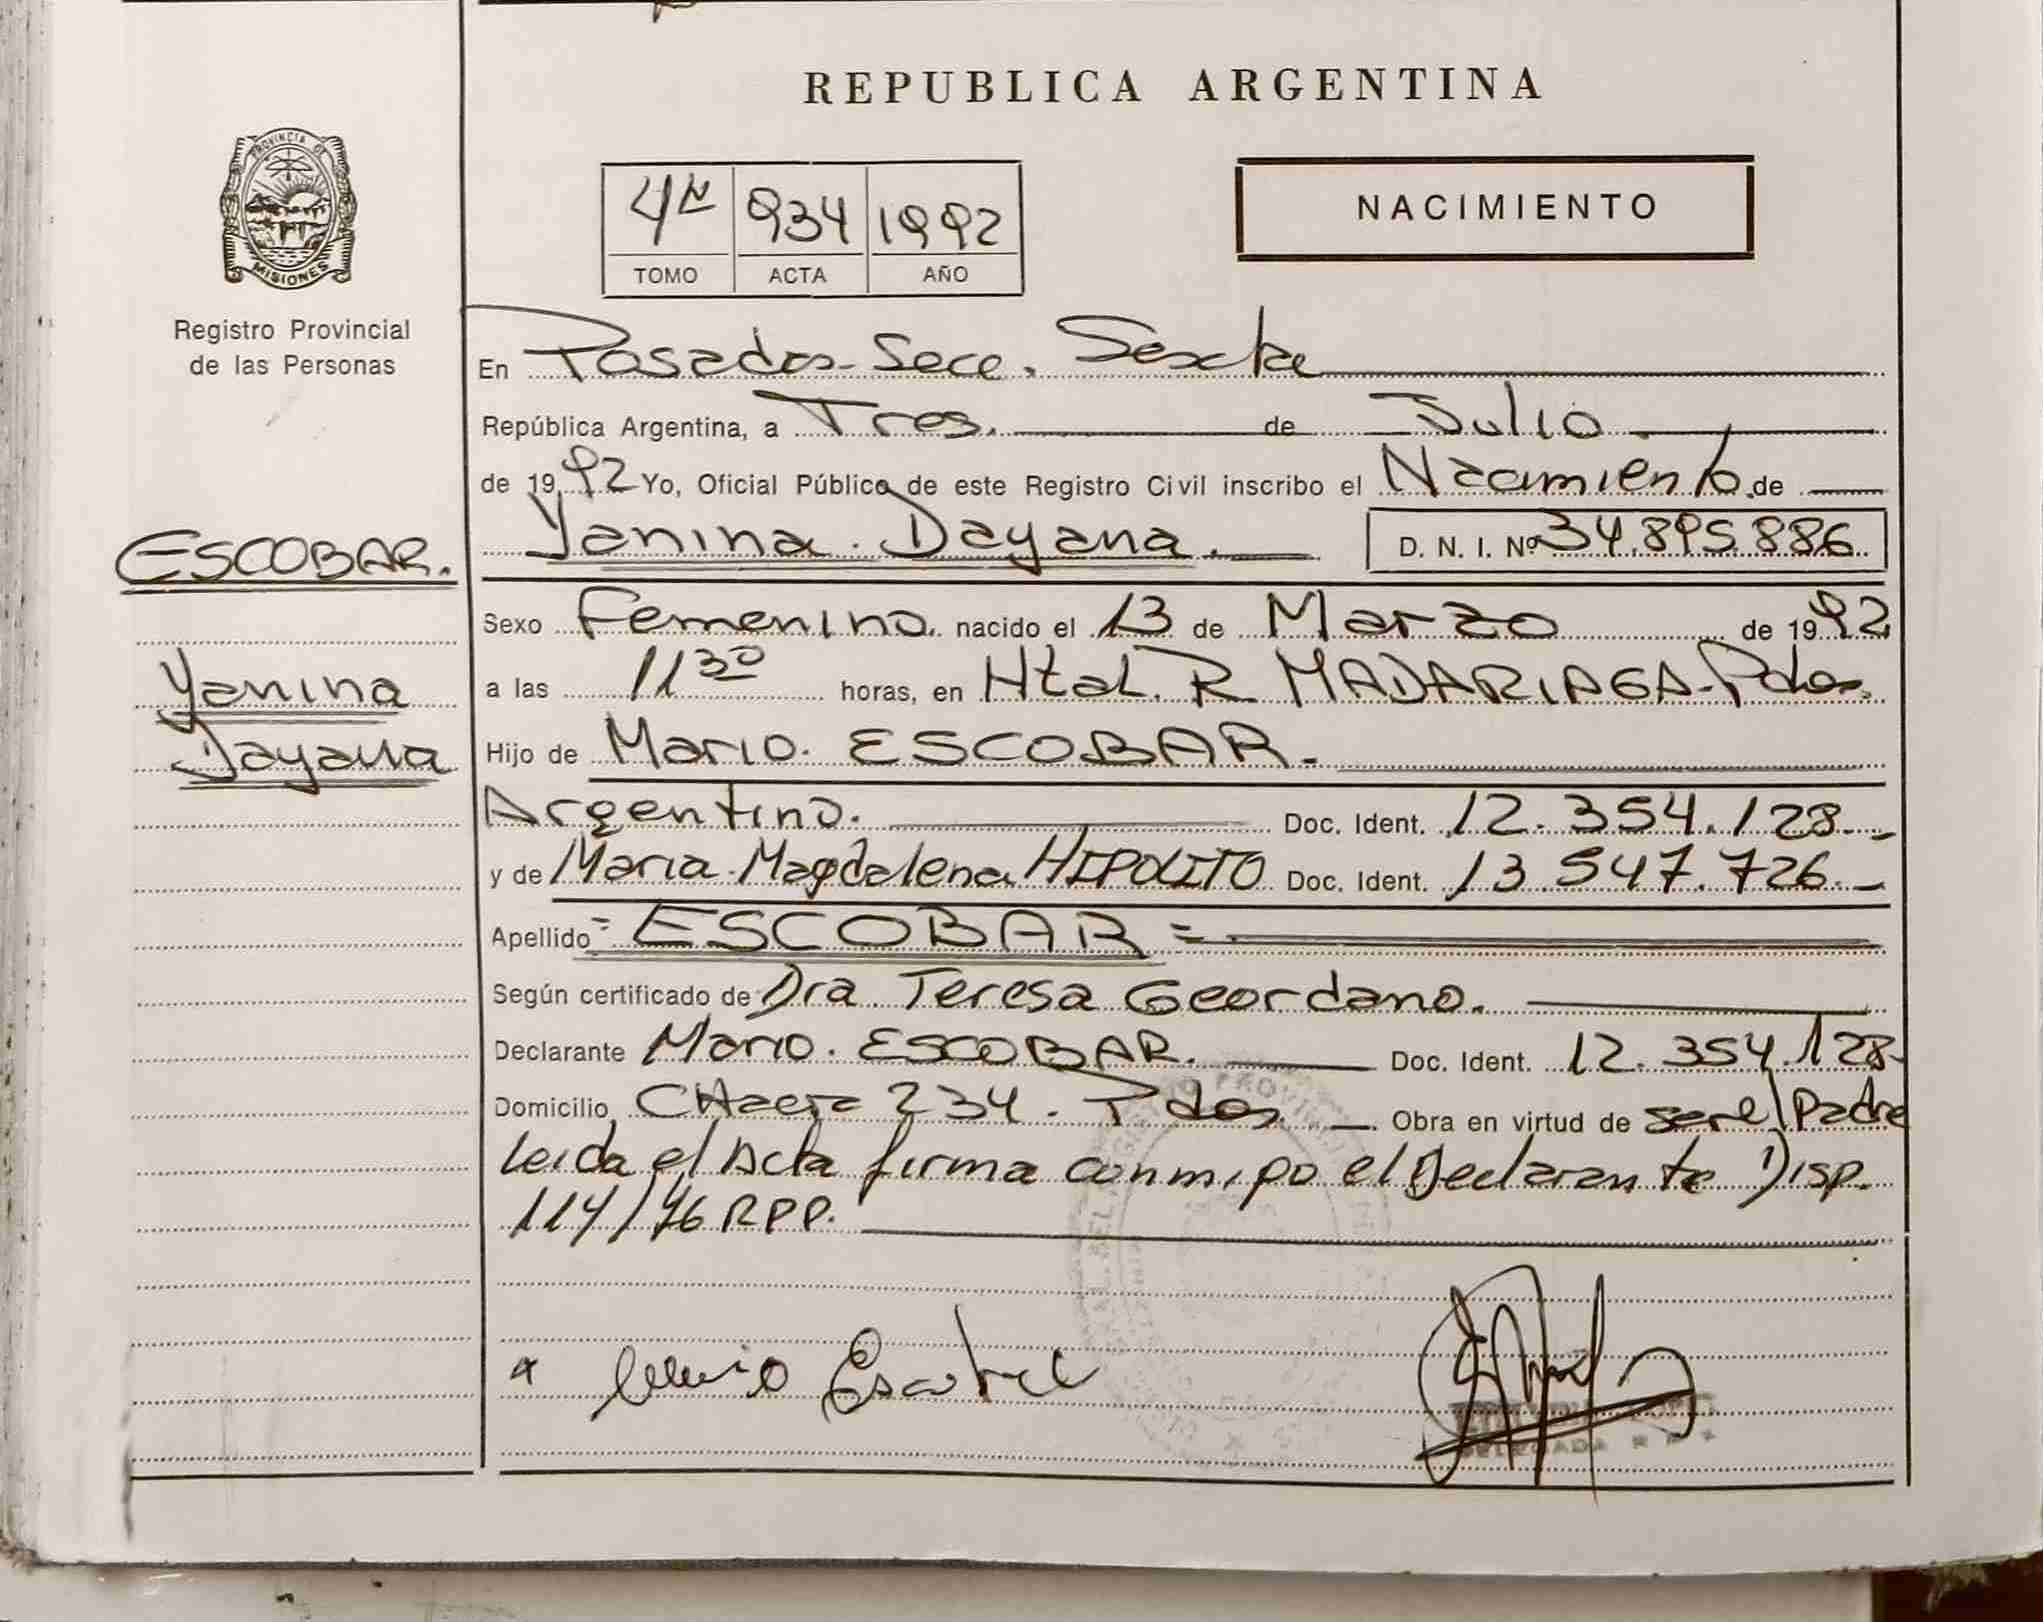 REPUBLICA ARGENTINA
PROVINCIA DE
MISIONES
Registro Provincial
de las Personas
934 1992
TOMO ACTA AÑO
NACIMIENTO
En Posadas - Secc. Sexta
República Argentina, a Tres. de Julio
de 1992 Yo, Oficial Público de este Registro Civil inscribo el Nacimiento de
Yanina Dayana. D. N. I. Nº 34.895.886
ESCOBAR.
Yanina
Dayana
Sexo Femenino. nacido el 13 de Marzo de 1992
a las 11 30 horas, en Htal. R. MADARIAGA - Pdas.
Hijo de Mario. ESCOBAR.
Argentino. Doc. Ident. 12.354.128.
y de Maria Magdalena HIPOLITO Doc. Ident. 13.547.726.
Apellido = ESCOBAR =
Según certificado de Dra. Teresa Geordano.
Declarante Mario. ESCOBAR. Doc. Ident. 12.354.128
Domicilio 234. Pdas. Obra en virtud de ser el Padre
leida el Acta firma conmigo el Declarante Disp.
114/76 RPP.
Escobar